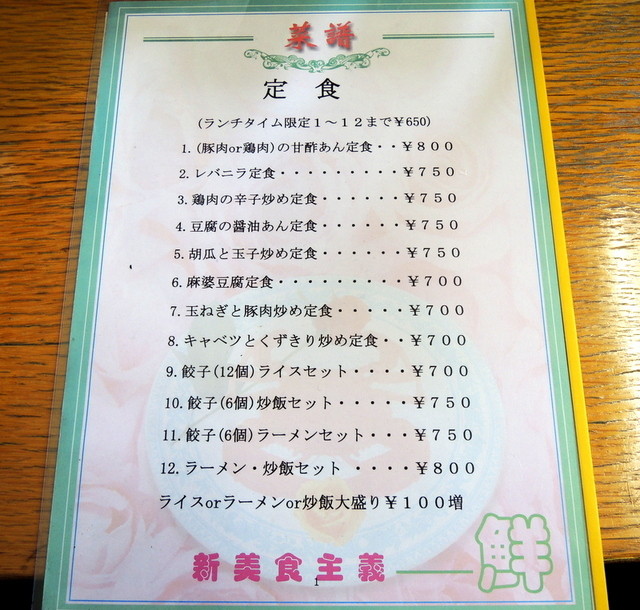 菜譜
定 食
(ランチタイム限定１～１２まで￥650)
1. (豚肉or鶏肉)の甘酢あん定食・・￥８００
2. レバニラ定食・・・・・・・・・￥７５０
3. 鶏肉の辛子炒め定食・・・・・・￥７５０
4. 豆腐の醤油あん定食・・・・・・￥７５０
5. 胡瓜と玉子炒め定食・・・・・・￥７５０
6. 麻婆豆腐定食・・・・・・・・・￥７００
7. 玉ねぎと豚肉炒め定食・・・・・￥７００
8. キャベツとくずきり炒め定食・・￥７００
9. 餃子(12個)ライスセット・・・・￥７００
10. 餃子(6個)炒飯セット・・・・・￥７５０
11. 餃子(6個)ラーメンセット・・・￥７５０
12. ラーメン・炒飯セット ・・・・￥８００
ライスorラーメンor炒飯大盛り￥１００増
新美食主義 鮮
1